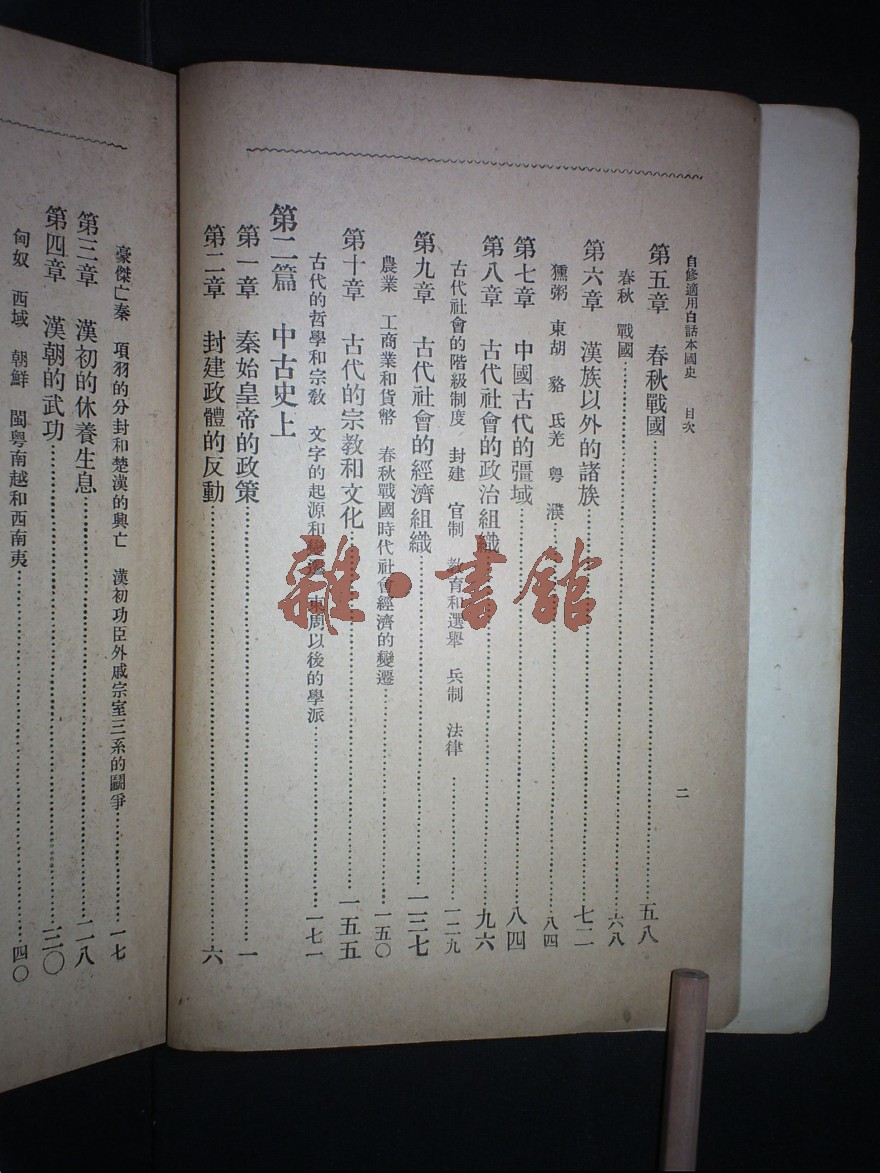 自修適用白話本國史　目次　二
第五章　春秋戰國……五八
春秋　戰國……六八
第六章　漢族以外的諸族……七二
獯粥　東胡　貉　氐羌　粵　濮……八四
第七章　中國古代的彊域……八四
第八章　古代社會的政治組織……九六
古代社會的階級制度　封建　官制　教育和選舉　兵制　法律……一二九
第九章　古代社會的經濟組織……一三七
農業　工商業和貨幣　春秋戰國時代社會經濟的變遷……一五〇
第十章　古代的宗教和文化……一五五
古代的哲學和宗教　文字的起源和變遷　東周以後的學派……一七一
第二篇　中古史上
第一章　秦始皇帝的政策……一
第二章　封建政體的反動……六
豪傑亡秦　項羽的分封和楚漢的興亡　漢初功臣外戚宗室三系的鬭爭……一七
第三章　漢初的休養生息……二八
第四章　漢朝的武功……三〇
匈奴　西域　朝鮮　閩粵南越和西南夷……四〇
雜·書館